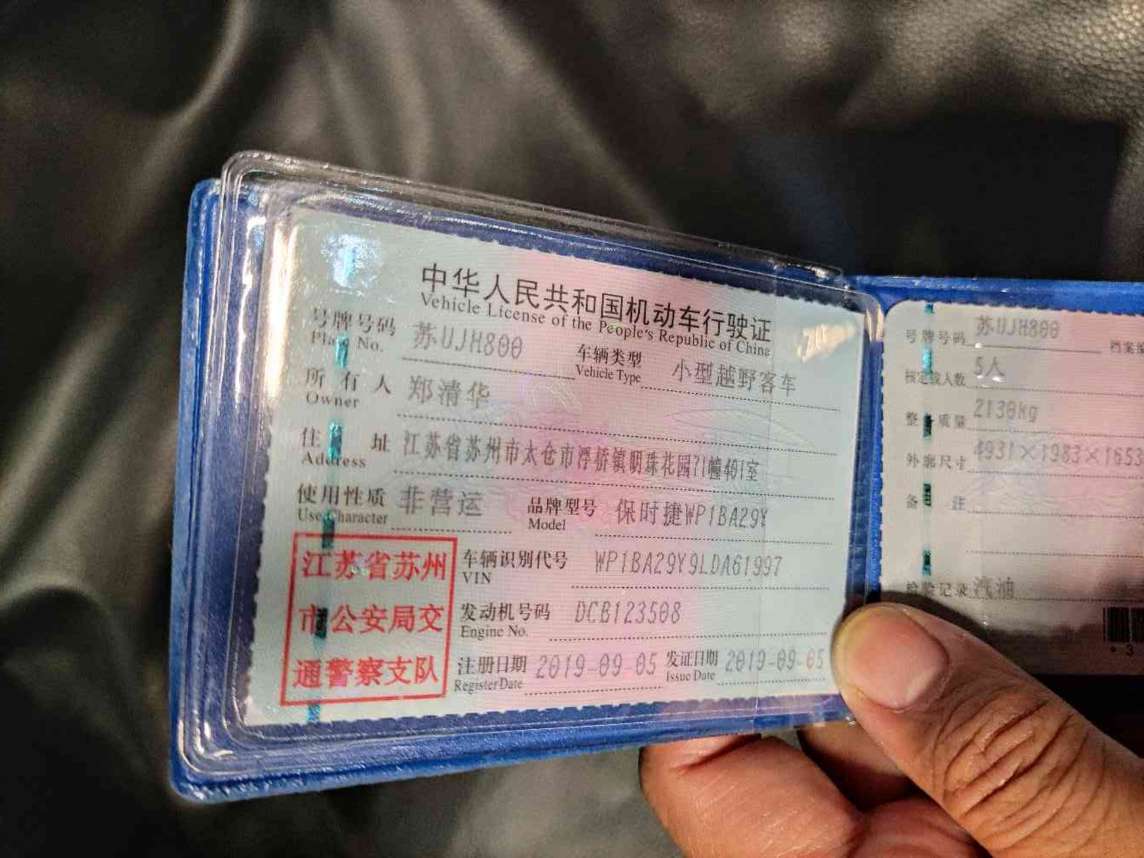 中华人民共和国机动车行驶证
Vehicle License of the People's Republic of China
号牌号码 苏UJH800 车辆类型 小型越野客车
Plate No. Vehicle Type
所有人 郑清华
Owner
住址 江苏省苏州市太仓市浮桥镇明珠花园71幢401室
Address
使用性质 非营运 品牌型号 保时捷WP1BA29Y
Use Character Model
江苏省苏州
市公安局交
通警察支队
车辆识别代号 WP1BA29Y9LDA61997
VIN
发动机号码 DCB123508
Engine No.
注册日期 2019-09-05 发证日期 2019-09-05
Register Date Issue Date
号牌号码 苏UJH800 档案
核定载人数 5人
整备质量 2130kg
外廓尺寸 4931×1983×1653
备注
检验记录 汽油